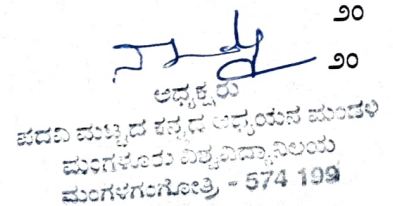 ೨೦
೨೦
ಅಧ್ಯಕ್ಷರು
ಪದವಿ ಮಟ್ಟದ ಕನ್ನಡ ಅಧ್ಯಯನ ಮಂಡಳಿ
ಮಂಗಳೂರು ವಿಶ್ವವಿದ್ಯಾನಿಲಯ
ಮಂಗಳಗಂಗೋತ್ರಿ - 574 199